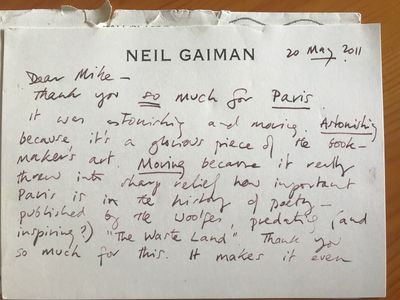 NEIL GAIMAN
20 May 2011
Dear Mike —
Thank you so much for Paris.
It was astonishing and moving. Astonishing
because it's a glorious piece of the book-
maker's art. Moving because it really
threw into sharp relief how important
Paris is in the history of poetry —
published by the Woolfes, predating (and
inspiring?) "The Waste Land". Thank you
so much for this. It makes it even